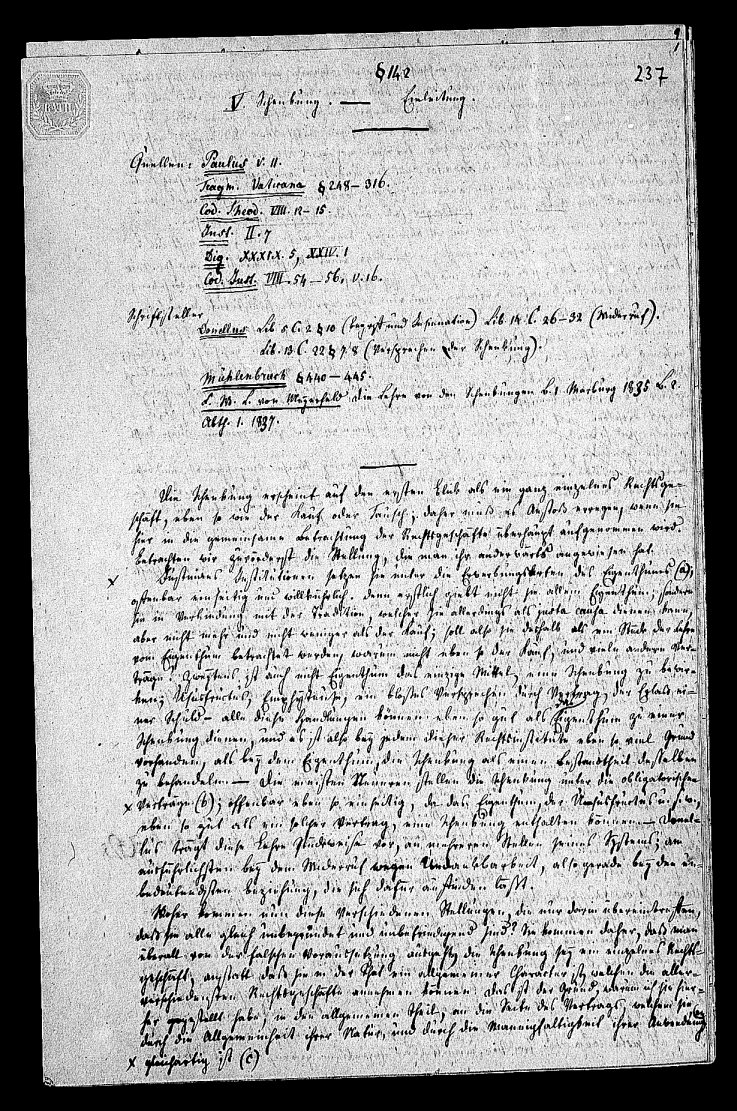 § 142
237
V. Schenkung. — Einleitung.
Quellen: Paulus V. 11.
Fragm. Vaticana § 248–316.
Cod. Theod. VIII. 12–15.
Inst. II. 7
Dig. XXXIX. 5, XXIV. 1
Cod. Just. VIII. 54–56, V. 16.
Schriftsteller
Donellus Lib 5 C. 2 § 10 (Begriff und Insinuation) Lib 14. C. 26–32 (Widerruf).
Lib. 13 C. 22 § 7. 8 (Versprechen der Schenkung).
Mühlenbruch § 440–445.
F. W. L. von Meyerfeld die Lehre von den Schenkungen B. 1 Marburg 1835 B. 2.
Abth. 1. 1837.
Die Schenkung erscheint auf den ersten Blick als ein ganz einzelnes Rechtsge-
schäft, eben so wie der Kauf oder Tausch; daher muß es Anstoß erregen, wenn sie
hier in die gemeinsame Betrachtung der Rechtsgeschäfte überhaupt aufgenommen wird.
Betrachten wir zuvörderst die Stellung, die man ihr anderwärts angewiesen hat.
x Justinians Institutionen setzen sie unter die Erwerbungsarten des Eigenthums (a),
offenbar einseitig und willkührlich. Denn erstlich giebt nicht sie allein Eigenthum, sondern
sie in Verbindung mit der Tradition, welcher sie allerdings als justa causa dienen kann,
aber nicht mehr und nicht weniger als der Kauf; soll also sie deshalb als ein Stück der Lehre
vom Eigenthum betrachtet werden, warum nicht eben so der Kauf, und viele andere Ver-
träge? Zweytens ist auch nicht Eigenthum das einzige Mittel, eine Schenkung zu bewir-
ken; Ususfructus, Emphyteuse, ein bloßes Versprechen durch Vertrag, der Erlaß ei-
ner Schuld – alle diese Handlungen können eben so gut als das Eigenthum zu einer
Schenkung dienen, und es ist also bey jedem dieser Rechtsinstitute eben so viel Grund
vorhanden, als bey dem Eigenthum, die Schenkung als einen Bestandtheil desselben
zu behandeln. — Die meisten Neueren stellen die Schenkung unter die obligatorischen
x Verträge (b); offenbar eben so einseitig, da das Eigenthum, der Ususfructus u. s. w.,
eben so gut als ein solcher Vertrag, eine Schenkung enthalten können. — Donel-
lus trägt diese Lehre stückweise vor, an mehreren Stellen seines Systems; am
ausführlichsten bey dem Widerruf wegen Undankbarkeit, also gerade bey der un-
bedeutendsten Beziehung, die sich dafür auffinden läßt.
Woher kommen nun diese verschiedenen Stellungen, die nur darin übereintreffen,
daß sie alle gleich unbegründet und unbefriedigend sind? Sie kommen daher, daß man
überall von der falschen Voraussetzung ausgeht, die Schenkung sey ein einzelnes Rechts-
geschäft, anstatt daß sie in der That ein allgemeiner Character ist, welchen die aller-
verschiedensten Rechtsgeschäfte annehmen können. Das ist der Grund, warum ich sie hier-
her gestellt habe, in den allgemeinen Theil, an die Seite des Vertrags, welchem sie
durch die Allgemeinheit ihrer Natur, und durch die Mannigfaltigkeit ihrer Anwendung
x gleichartig ist (c)